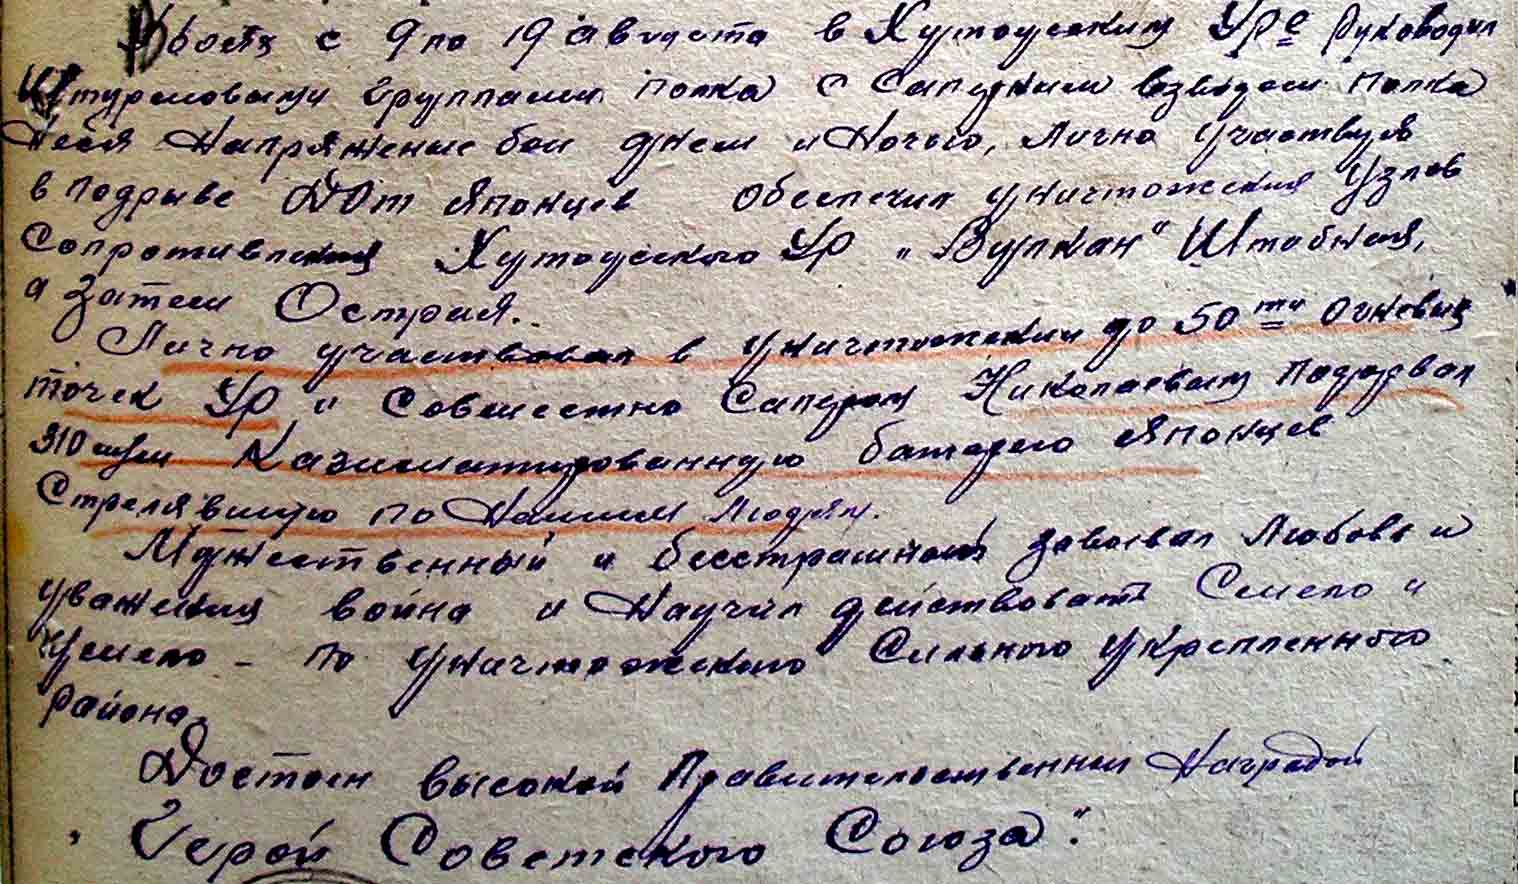 В боях с 9 по 19 августа в Хутоуским УРе Руководил
Штурмовыми группами полка с Сапёрным взводом полка
Ведя Напряжение бои днем и Ночью, Лично участвуя
в подрыве ДОт Японцев Обеспечил уничтожения Узлов
Сопротивления Хутоуского УР „Вулкан" Штабная,
а затем Острая.
Лично участвовал в уничтожении до 50ти Огневых
точек УР и Совместно Сапером Николаевым подорвал
310 мм Казиматированную батарею Японцев
Стрелявшую по Нашим Людям.
Мужественный и бесстрашный завоевал Любовь и
уважения война и Научил действовать Смело и
Умело - по уничтожению Сильного Укрепленного
района.
Достоен высокой Правительственный Наградой
„Герой Советского Союза".